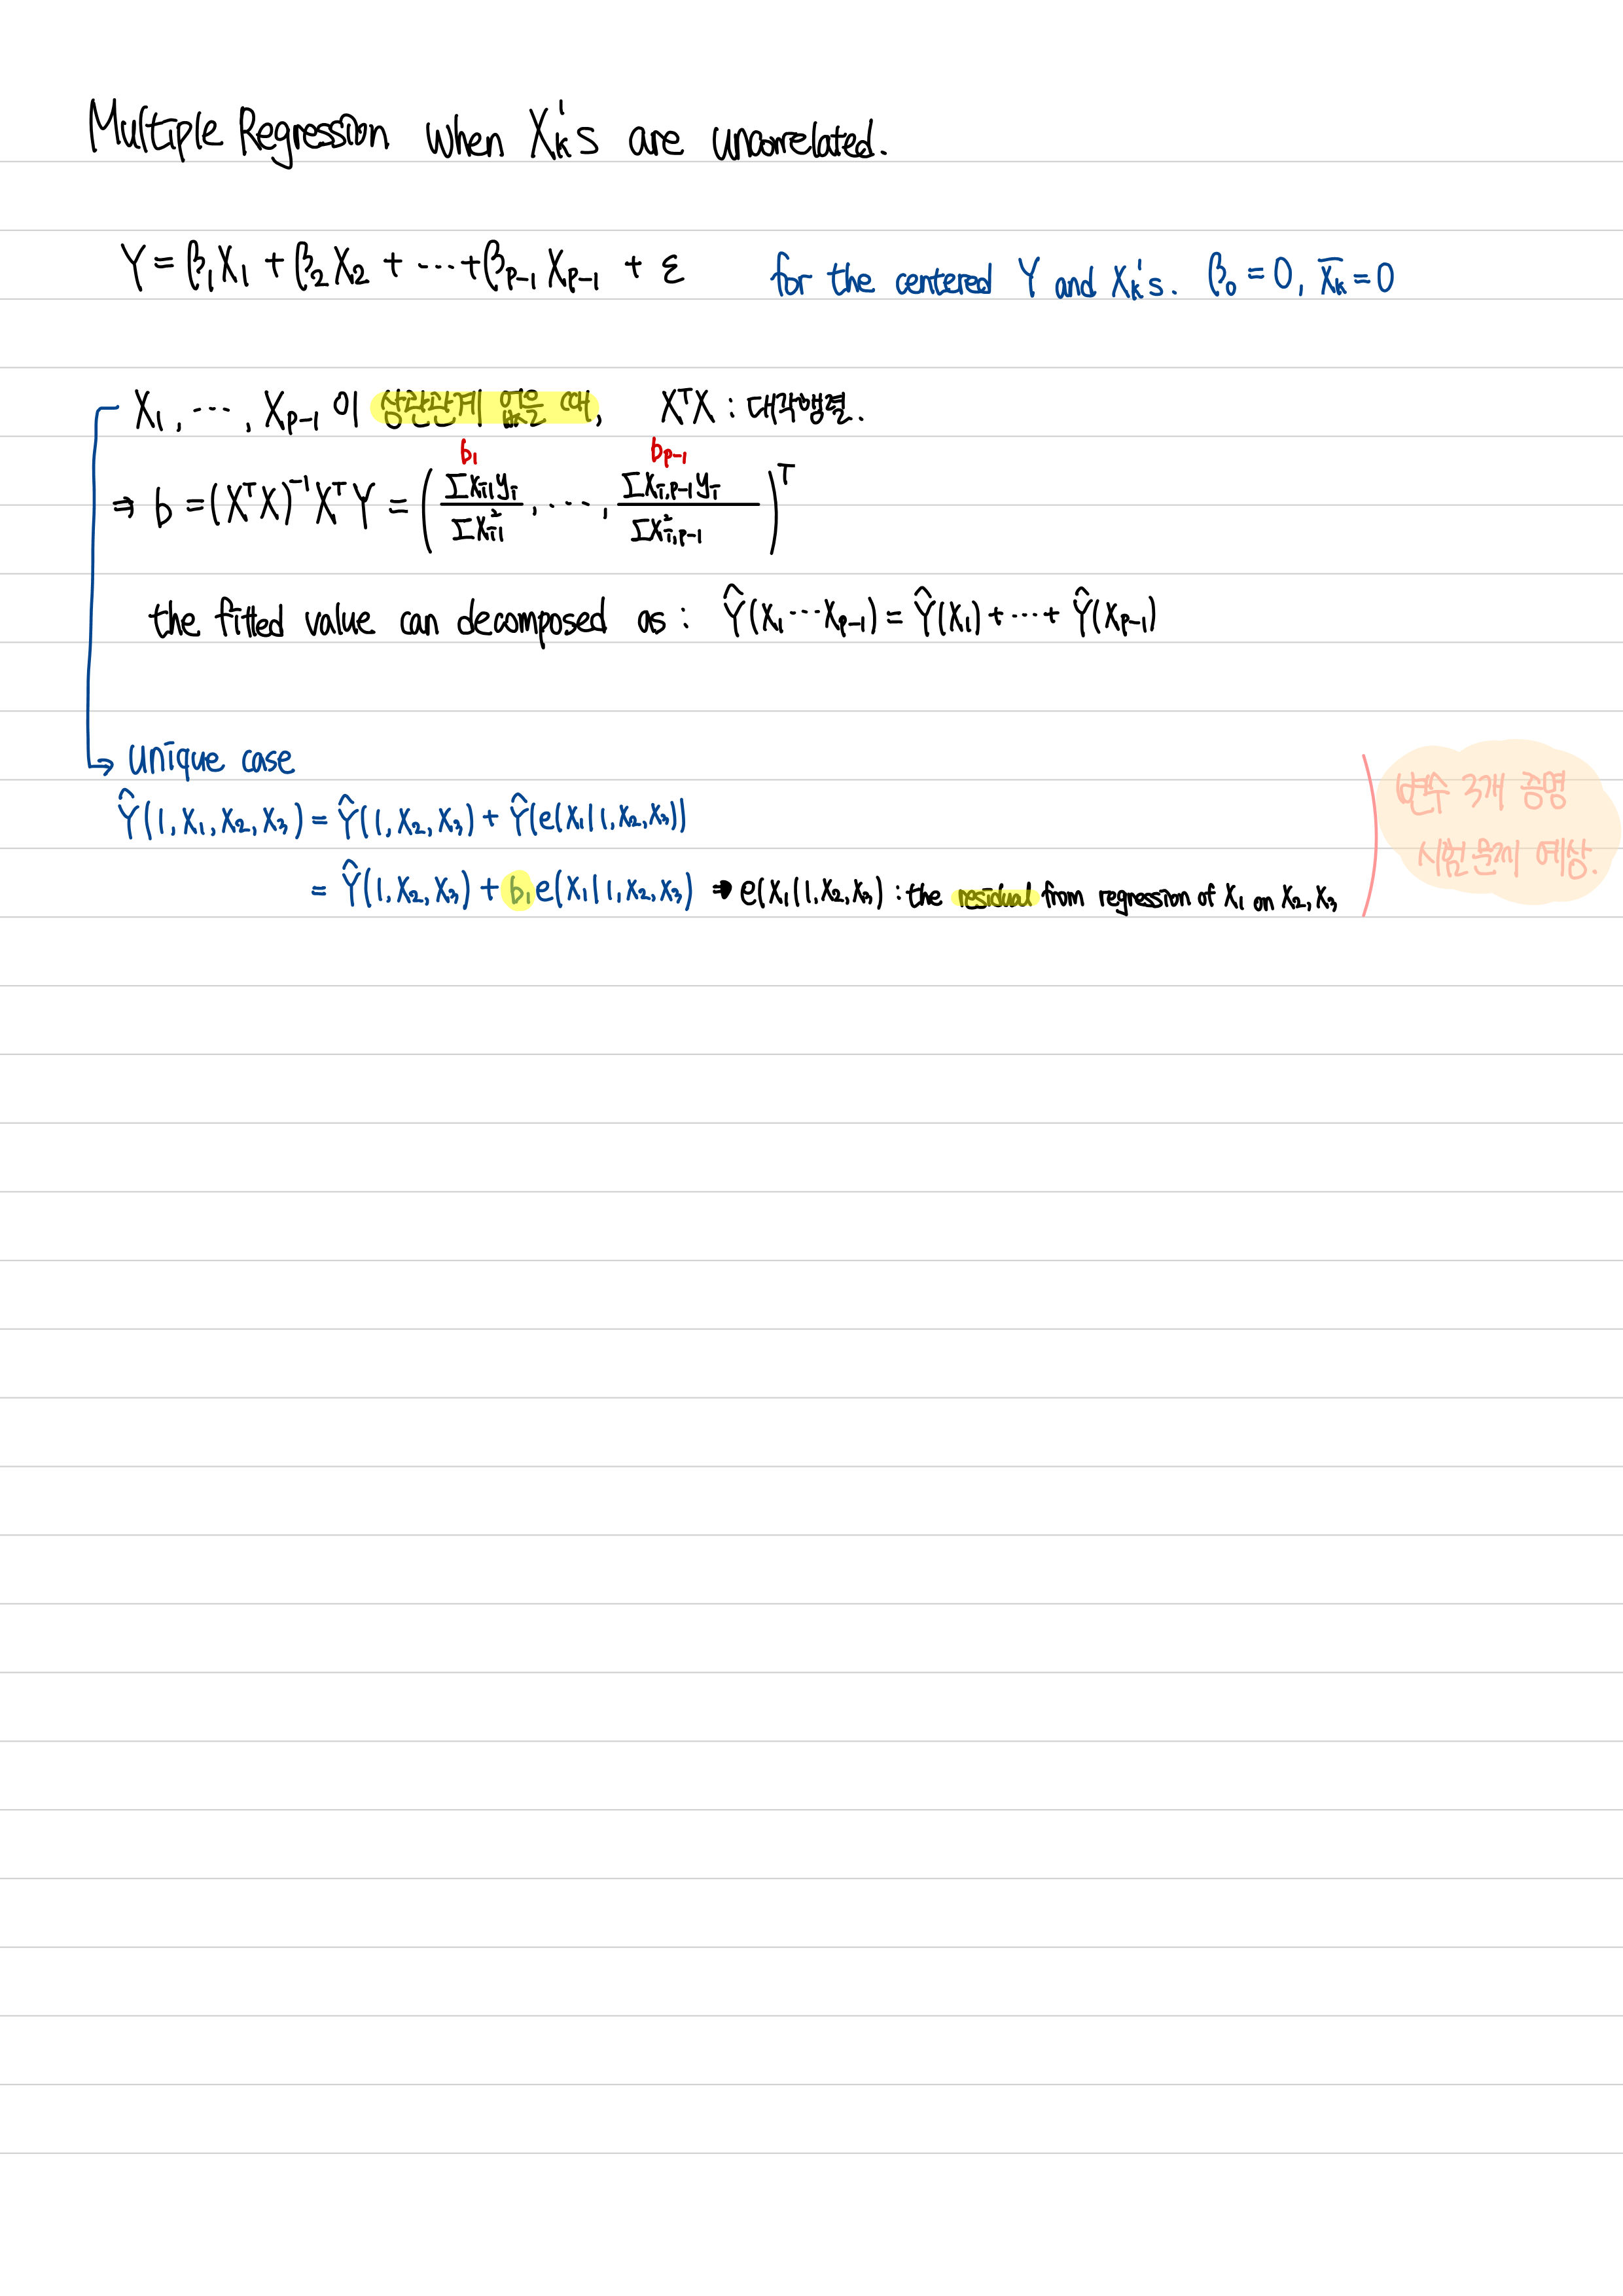 Multiple Regression when Xk's are uncorrelated.
Y = β₁X₁ + β₂X₂ + ⋯ + βp-1 Xp-1 + ε for the centered Y and Xk's. β₀ = 0, X̄k = 0
X₁, ⋯, Xp-1 이 상관관계 없을 때, XᵀX : 대각행렬.
b₁ bp-1
⇒ b = (XᵀX)⁻¹XᵀY = (Σxi1yi / Σxi1², ⋯, Σxi,p-1yi / Σxi,p-1²)ᵀ
the fitted value can decomposed as : Ŷ(X₁ ⋯ Xp-1) = Ŷ(X₁) + ⋯ + Ŷ(Xp-1)
→ unique case
Ŷ(1, X₁, X₂, X₃) = Ŷ(1, X₂, X₃) + Ŷ(e(X₁|1, X₂, X₃))
= Ŷ(1, X₂, X₃) + b₁e(X₁|1, X₂, X₃) → e(X₁|1, X₂, X₃) : the residual from regression of X₁ on X₂, X₃
변수 3개 증명
시험문제 예상.